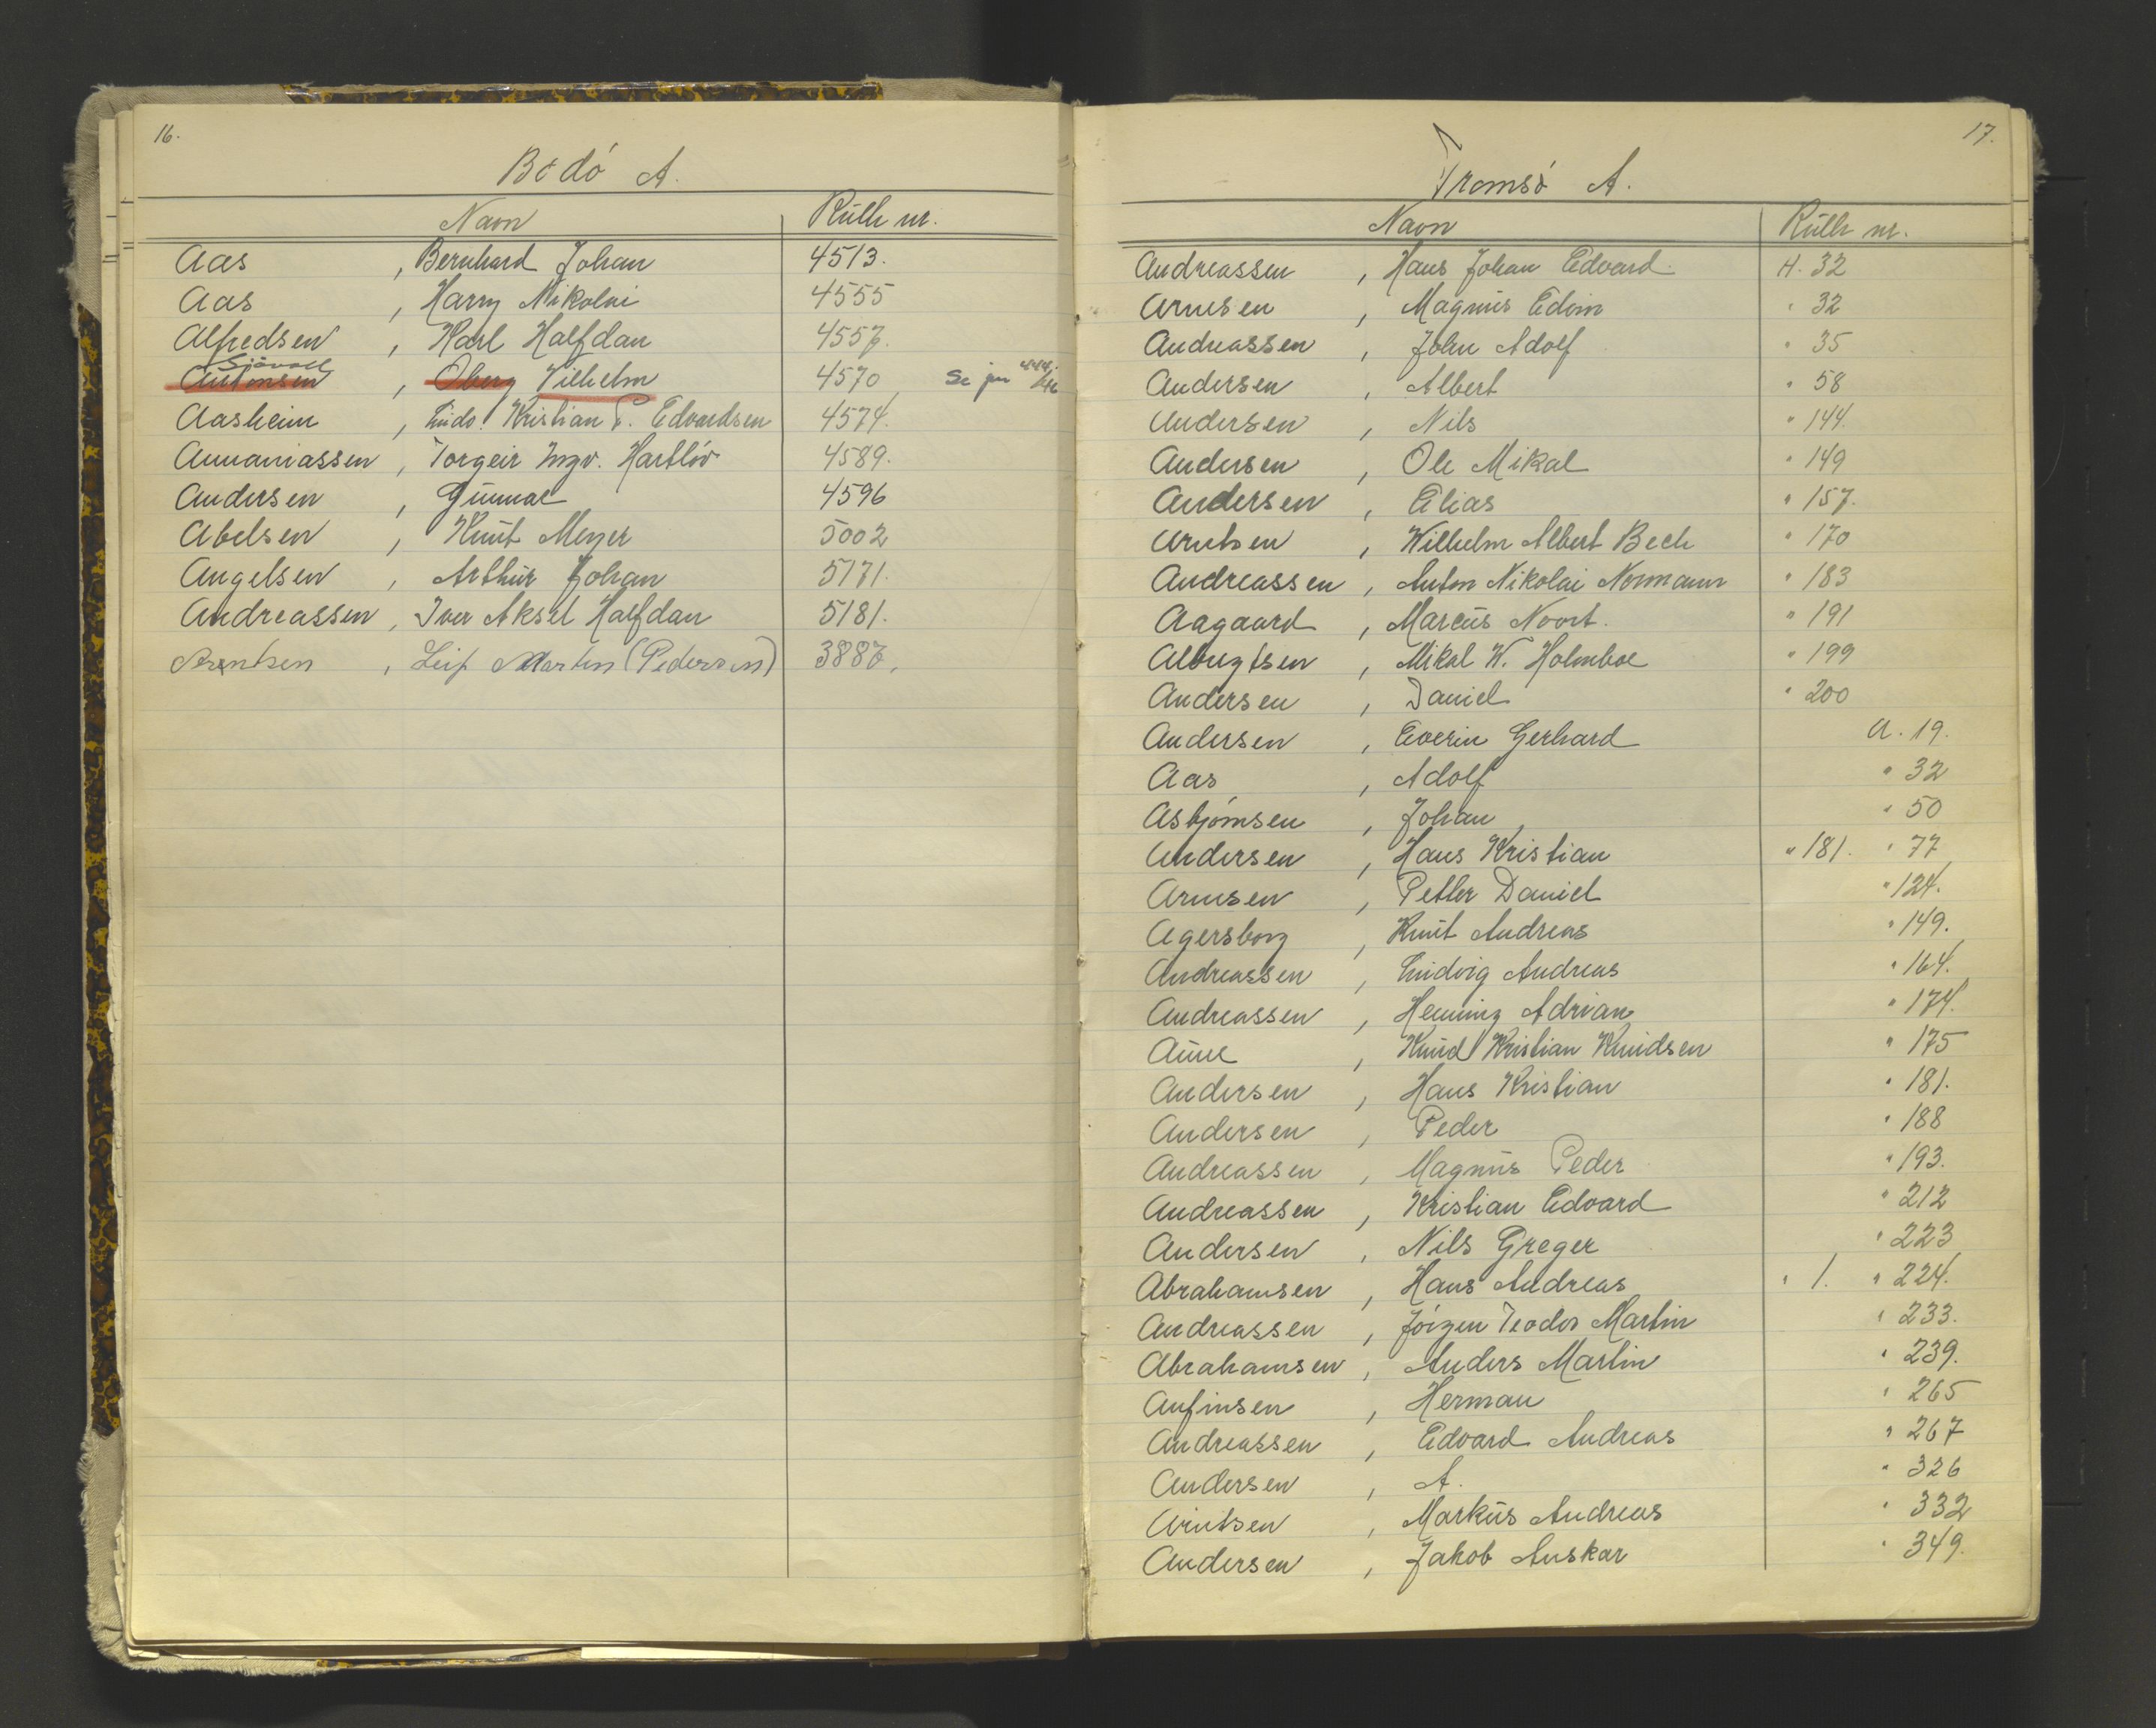 16.
Bodó A.
Navn Rulle nr.
Aas , Bernhard Johan 4513.
Aas , Harry Nikolai 4555
Alfredsen , Karl Halfdan 4557.
Sjövoll
Antonsen , Oberg Vilhelm 4570 Se jnr
Aasheim , Ludv. Kristian P. Edvardsen 4574.
Annaniassen , Torgeir Ingv. Hartlóv 4589.
Andersen , Gunnar 4596
Abelsen , Knut Meyer 5002
Angelsen , Arthur Johan 5171.
Andreassen , Iver Aksel Halfdan 5181.
Arentsen , Leif Martin (Pedersen) 3887.
17.
Tromsó A.
Navn Rulle nr.
Andreassen , Hans Johan Edvard H. 32
Arnesen , Magnus Edvin " 32
Andreassen , John Adolf " 35
Andersen , Albert " 58
Andersen , Nils " 144.
Andersen , Ole Mikal " 149
Andersen , Elias " 157.
Arntsen , Wilhelm Albert Bech " 170
Andreassen , Anton Nikolai Normann " 183
Aagaard , Marcus Noort. " 191
Albrigtsen , Mikal W. Holmboe " 199
Andersen , Daniel " 200
Andersen , Everin Gerhard A. 19.
Aas , Adolf " 32
Asbjórnsen , Johan " 50
Andersen , Hans Kristian " 181. " 77
Arnesen , Petter Daniel " 124.
Agersborg , Knut Andreas " 149.
Andreassen , Ludvig Andreas " 164.
Andreassen , Henning Adrian " 174.
Aune , Knud Kristian Knudsen " 175
Andersen , Hans Kristian " 181.
Andersen , Peder " 188
Andreassen , Magnus Peder " 193.
Andreassen , Kristian Edvard " 212
Andersen , Nils Greger " 223
Abrahamsen , Hans Andreas " 1. " 224.
Andreassen , Jórgen Teodor Martin " 233.
Abrahamsen , Anders Martin " 239.
Anfinsen , Herman " 265
Andreassen , Edvard Andreas " 267
Andersen , A. " 326
Arntsen , Markus Andreas " 332
Andersen , Jakob Anskar " 349.